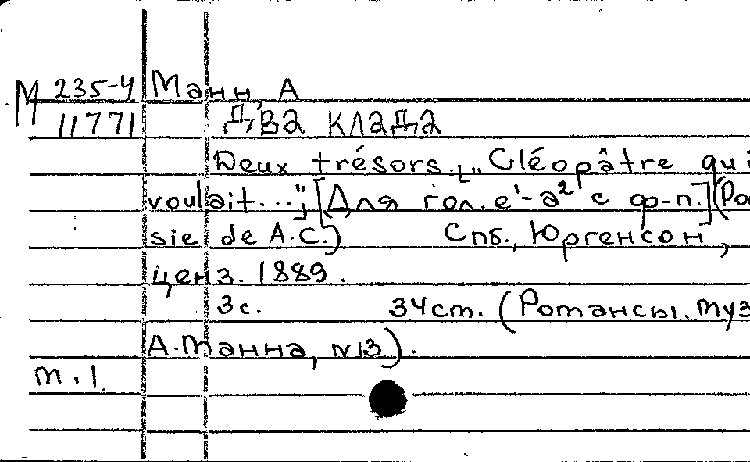 М 235-4 Манн, А
11771 ДВА КЛАДА
Deux trésors. „Cléopâtre qui
voulait...", [Для гол. e¹-a² с ф-п.] (Poé
sie de A.C.) Спб., Юргенсон,
ценз. 1889.
3с. 34см. (Романсы. муз
А. Манна, №13).
м. 1.